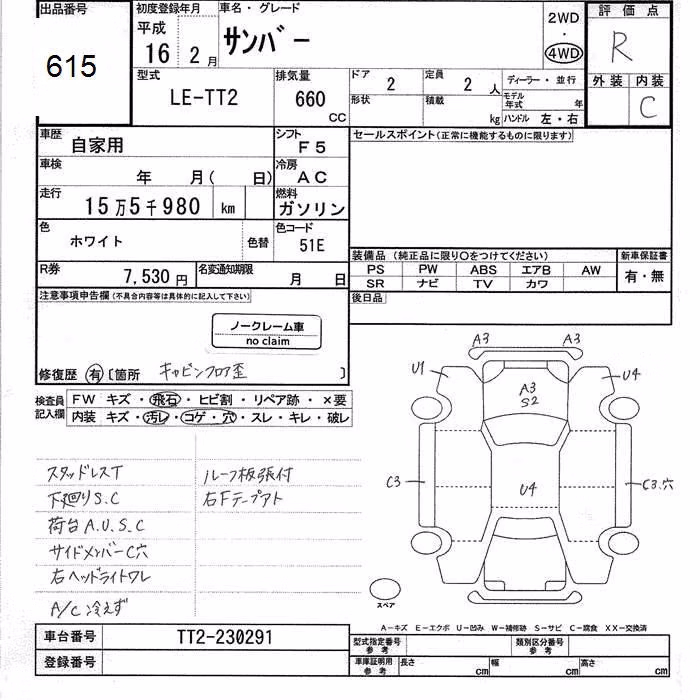 出品番号 初度登録年月 車名・グレード 評価点
615 平成 16 2月 サンバー 2WD ・ 4WD R
型式 排気量 ドア 定員 ディーラー・並行 外装 内装
LE-TT2 660 CC 2 2人 C
形状 積載 kg モデル年式 年 ハンドル 左・右
車歴 自家用 シフト F5 セールスポイント(正常に機能するものに限ります)
車検 年 月( 日) 冷房 AC
走行 15万5千980 km 燃料 ガソリン
色 ホワイト 色替 色コード 51E
装備品 (純正品に限り〇をつけてください) 新車保証書
PS PW ABS エアB AW 有・無
SR ナビ TV カワ
R券 7,530円 名変通知期限 月 日
後日品
注意事項申告欄(不具合内容等は具体的に記入して下さい)
ノークレーム車
no claim
修復歴 有 〔箇所 キャビンフロア歪 〕
検査員記入欄 FW キズ・飛石・ヒビ割・リペア跡・×要
内装 キズ・汚レ・コゲ・穴・スレ・キレ・破レ
スタッドレスT ルーフ板張付
下廻りS.C 右Fテープアト
荷台A.U.S.C
サイドメンバーC穴
右ヘッドライトワレ
A/C冷えず
A3 A3
U1 U4
A3
S2
C3 U4 C3.穴
スペア
A-キズ E-エクボ U-凹み W-補修跡 S-サビ C-腐食 XX-交換済
車台番号 TT2-230291 型式指定番号 参考 類別区分番号 参考
登録番号 車庫証明用 参考 長さ cm 幅 cm 高さ cm